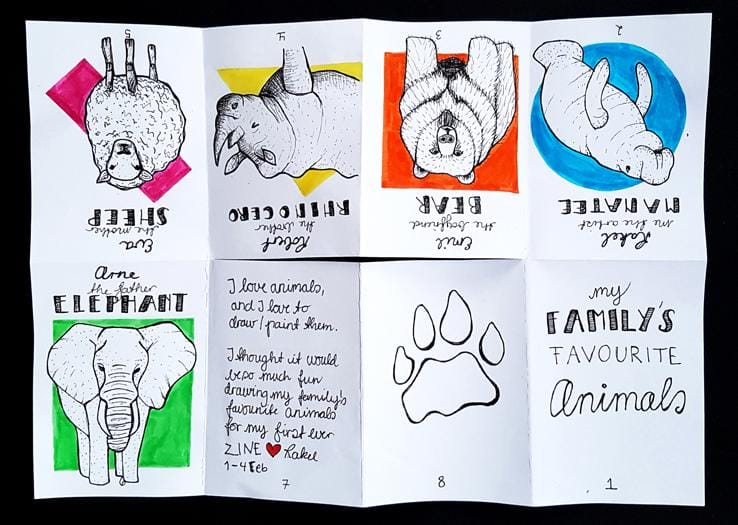 my
FAMILY'S
FAVOURITE
Animals
1
Rakel
me the artist
MANATEE
2
Emil
the boyfriend
BEAR
3
Robert
the brother
RHINOCERO
4
Eva
the mother
SHEEP
5
Arne
the father
ELEPHANT
I love animals,
and I love to
draw/paint them.
I thought it would
be so much fun
drawing my family's
favourite animals
for my first ever
ZINE ♥ Rakel
1-4 Feb
7
8